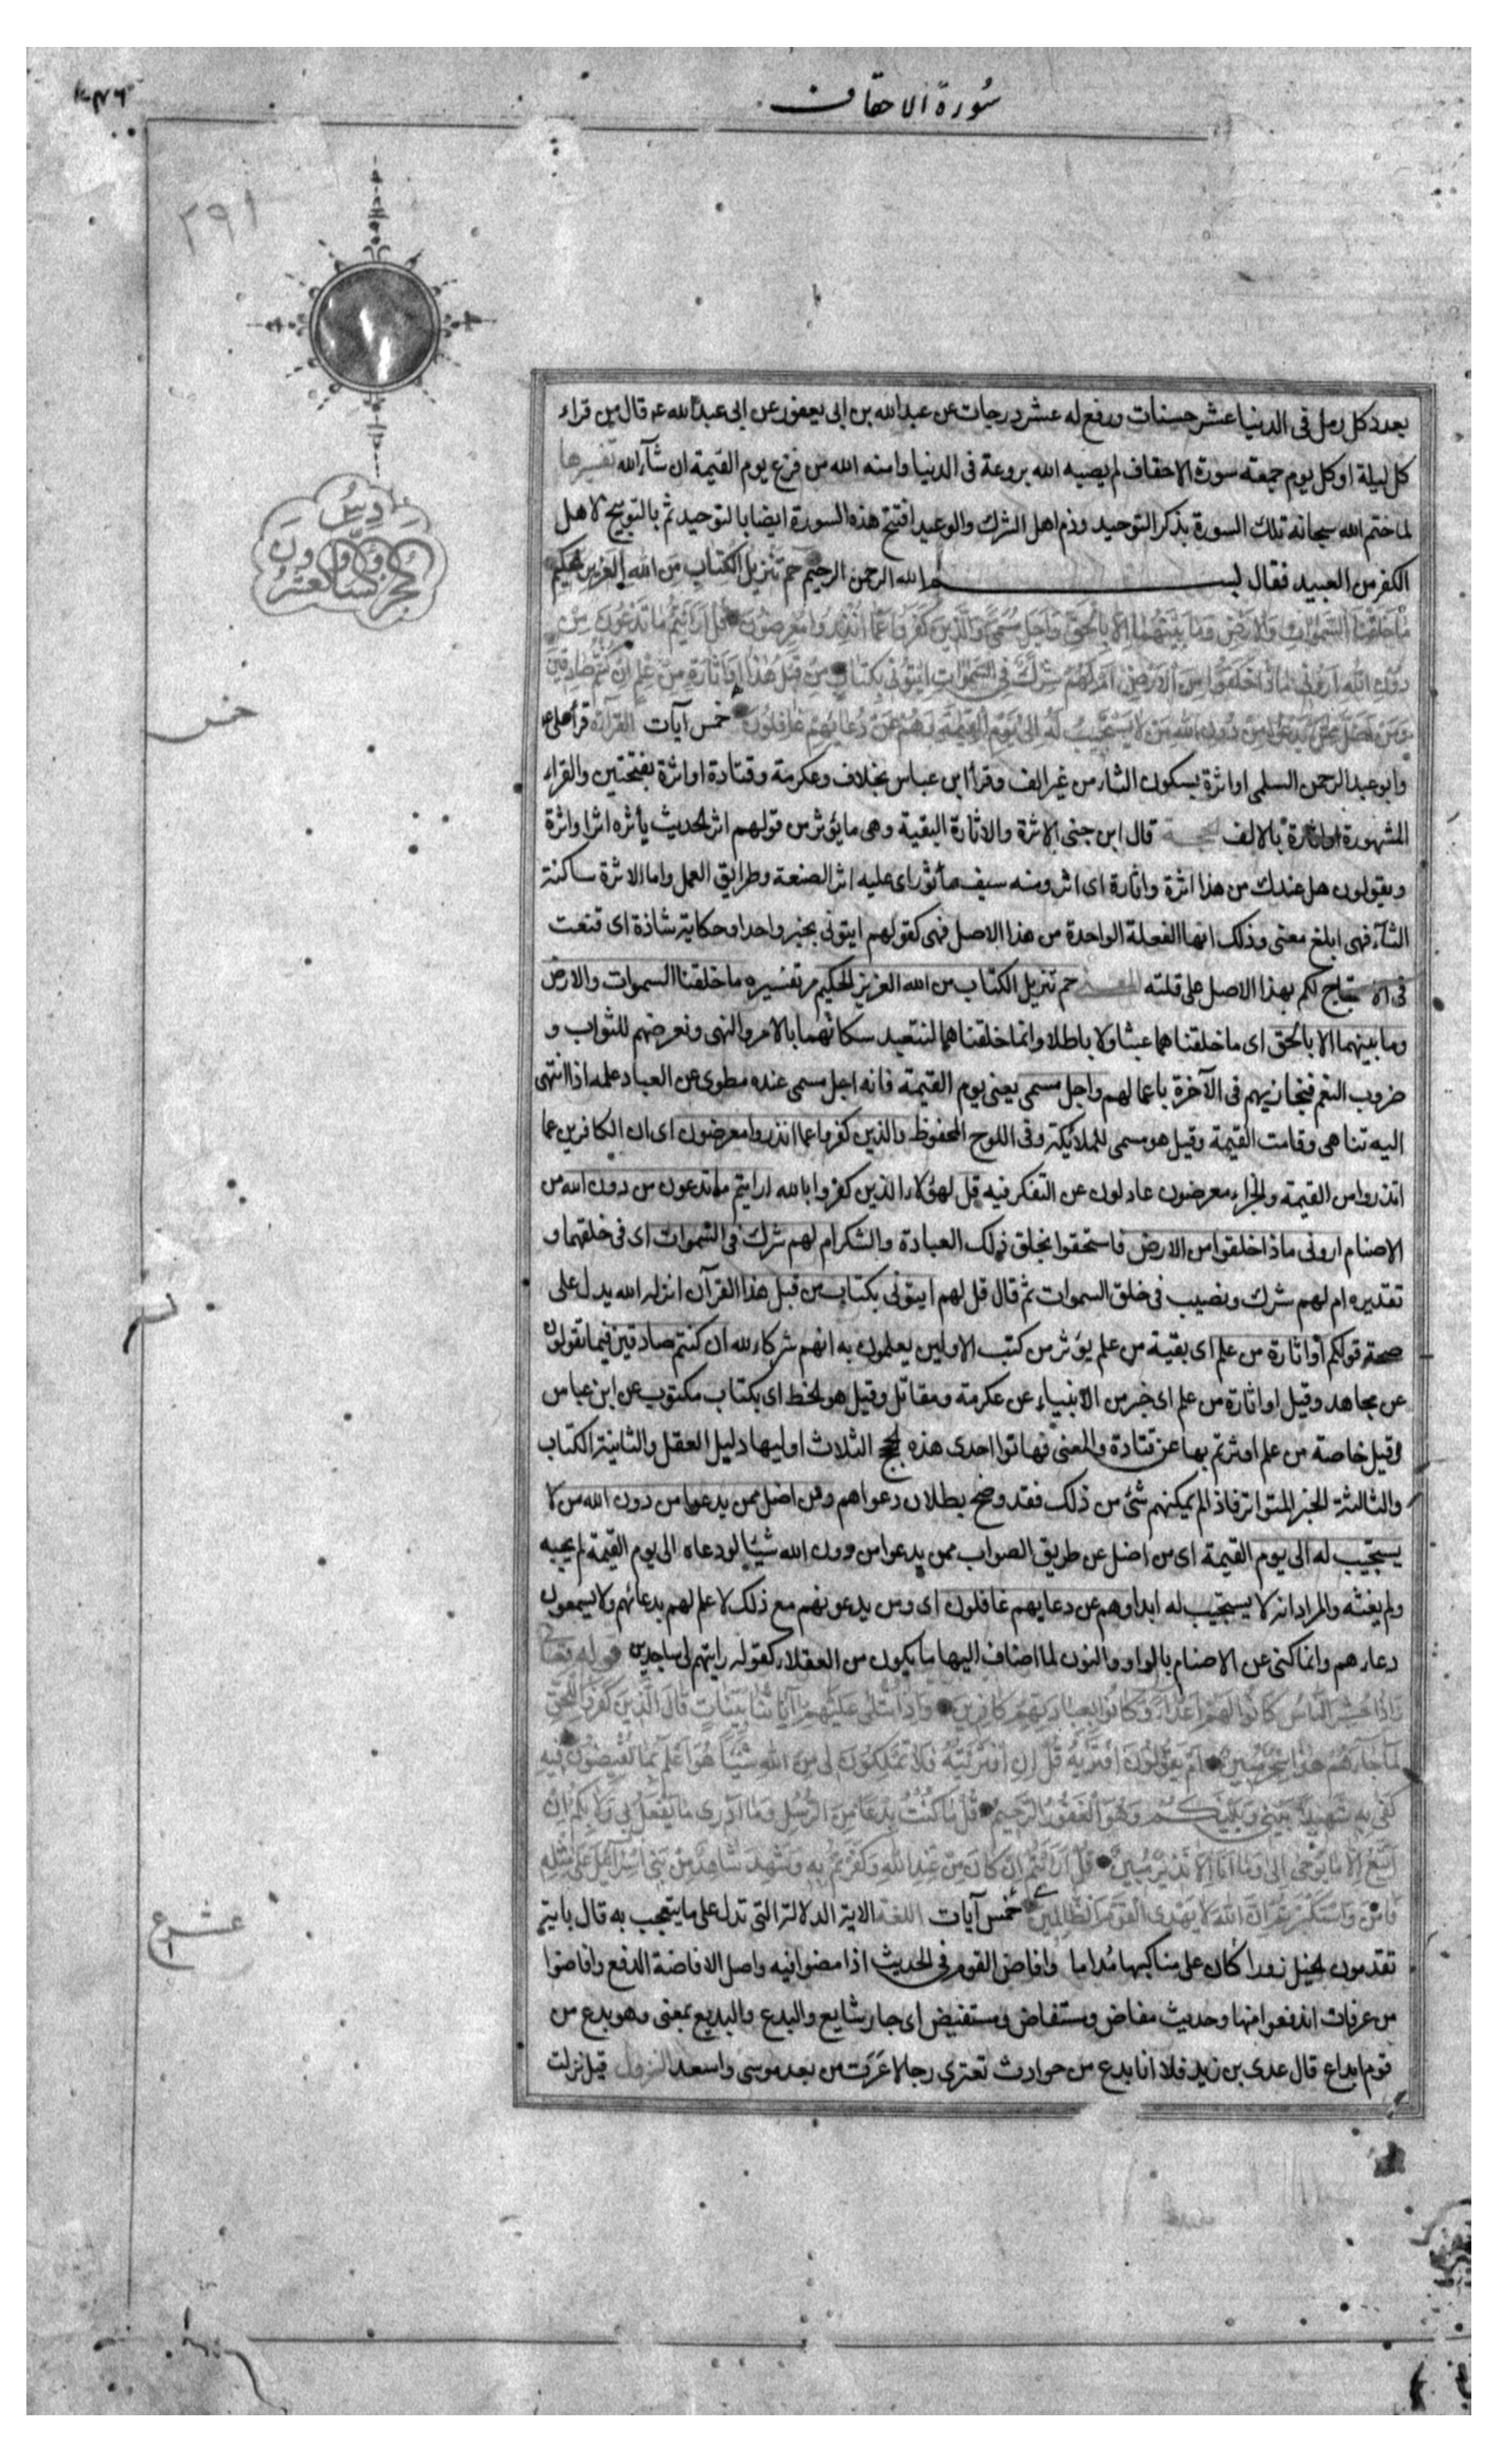 سورة الاحقاف
٢٩١
الجزء السادس والعشرون
بعدد كل رمل فى الدنيا عشر حسنات ورفع له عشر درجات عن عبد الله بن ابى يعفور عن ابى عبد الله ع قال من قراء
كل ليلة او كل يوم جمعة سورة الاحقاف لم يصبه الله بروعة فى الدنيا وامنه الله من فزع يوم القيمة ان شآء الله تفسيرها
لما ختم الله سبحانه تلك السورة بذكر التوحيد وذم اهل الشرك والوعيد افتتح هذه السورة ايضا بالتوحيد ثم بالتوبيخ لاهل
الكفر من العبيد فقال بسم الله الرحمن الرحيم حم تنزيل الكتاب من الله العزيز الحكيم
مَا خَلَقْنَا السَّمٰوَاتِ وَالْاَرْضَ وَمَا بَيْنَهُمَا اِلَّا بِالْحَقِّ وَاَجَلٍ مُسَمًّى وَالَّذِينَ كَفَرُوا عَمَّا اُنْذِرُوا مُعْرِضُونَ قُلْ اَرَاَيْتُمْ مَا تَدْعُونَ مِنْ
دُونِ اللهِ اَرُونِى مَاذَا خَلَقُوا مِنَ الْاَرْضِ اَمْ لَهُمْ شِرْكٌ فِى السَّمٰوَاتِ اِيتُونِى بِكِتَابٍ مِنْ قَبْلِ هٰذَا اَوْ اَثَارَةٍ مِنْ عِلْمٍ اِنْ كُنْتُمْ صَادِقِينَ
وَمَنْ اَضَلُّ مِمَّنْ يَدْعُوا مِنْ دُونِ اللهِ مَنْ لَا يَسْتَجِيبُ لَهُ اِلٰى يَوْمِ الْقِيٰمَةِ وَهُمْ عَنْ دُعَائِهِمْ غَافِلُونَ خمس آيات القرآءة قرأ على ع
خمس
وابو عبد الرحمن السلمى او اثرة بسكون الثاء من غير الف وقرا ابن عباس بخلاف وعكرمة وقتادة او اثرة بفتحتين والقراءة
المشهورة او اثارة بالالف الحجة قال ابن جنى الاثرة والاثارة البقية وهى ما يؤثر من قولهم اثر الحديث يأثره اثرا واثرة
ويقولون هل عندك من هذا اثرة واثارة اى اثر ومنه سيف مأثور اى عليه اثر الصنعة وطرايق العمل واما الاثرة ساكنة
الثآء فهى ابلغ معنى وذلك انها الفعلة الواحدة من هذا الاصل فهى كقولهم ايتونى بخبر واحد او حكاية شاذة اى قنعت
فى الاحتجاج لكم بهذا الاصل على قلته المعنى حم تنزيل الكتاب من الله العزيز الحكيم مر تفسيره ما خلقنا السموات والارض
وما بينهما الا بالحق اى ما خلقناهما عبثا ولا باطلا وانما خلقناهما لنتعبد سكانهما بالامر والنهى ونعرضهم للثواب و
ضروب النعم فنجازيهم فى الآخرة باعمالهم واجل مسمى يعنى يوم القيمة فانه اجل مسمى عنده مطوى عن العباد علمه اذا انتهى
اليه تناهى وقامت القيمة وقيل هو مسمى للملائكة وفى اللوح المحفوظ والذين كفروا عما انذروا معرضون اى ان الكافرين عما
انذروا من القيمة والجزاء معرضون عادلون عن التفكر فيه قل لهؤلاء الذين كفروا بالله ارايتم ما تدعون من دون الله من
الاصنام ارونى ماذا خلقوا من الارض فاستحقوا بخلق ذلك العبادة والشكر ام لهم شرك فى السموات اى فى خلقهما و
تقديره ام لهم شرك ونصيب فى خلق السموات ثم قال قل لهم ايتونى بكتاب من قبل هذا القرآن انزله الله يدل على
صحة قولكم او اثارة من علم اى بقية من علم يؤثر من كتب الاولين يعلمون به انهم شركاء لله ان كنتم صادقين فيما تقولون
عن مجاهد وقيل او اثارة من علم اى خبر من الانبياء عن عكرمة ومقاتل وقيل هو الخط اى بكتاب مكتوب عن ابن عباس
وقيل خاصة من علم اوثرتم بها عن قتادة والمعنى فهاتوا احدى هذه الحجج الثلاث اوليها دليل العقل والثانية الكتاب
والثالثة الخبر المتواتر فاذا لم يمكنهم شئ من ذلك فقد وضح بطلان دعواهم ومن اضل ممن يدعوا من دون الله من لا
يستجيب له الى يوم القيمة اى من اضل عن طريق الصواب ممن يدعوا من دون الله شيئا لو دعاه الى يوم القيمة لم يجبه
ولم يغثه والمراد انه لا يستجيب له ابدا وهم عن دعايهم غافلون اى ومن يدعونهم مع ذلك لا علم لهم بدعائهم ولا يسمعون
دعاءهم وانما كنى عن الاصنام بالواو والنون لما اضاف اليها ما يكون من العقلاء كقوله رايتهم لى ساجدين قوله تعالى
وَاِذَا حُشِرَ النَّاسُ كَانُوا لَهُمْ اَعْدَاءً وَكَانُوا بِعِبَادَتِهِمْ كَافِرِينَ وَاِذَا تُتْلٰى عَلَيْهِمْ اٰيَاتُنَا بَيِّنَاتٍ قَالَ الَّذِينَ كَفَرُوا لِلْحَقِّ
لَمَّا جَاءَهُمْ هٰذَا سِحْرٌ مُبِينٌ اَمْ يَقُولُونَ افْتَرٰيهُ قُلْ اِنِ افْتَرَيْتُهُ فَلَا تَمْلِكُونَ لِى مِنَ اللهِ شَيْئًا هُوَ اَعْلَمُ بِمَا تُفِيضُونَ فِيهِ
كَفٰى بِهِ شَهِيدًا بَيْنِى وَبَيْنَكُمْ وَهُوَ الْغَفُورُ الرَّحِيمُ قُلْ مَا كُنْتُ بِدْعًا مِنَ الرُّسُلِ وَمَا اَدْرِى مَا يُفْعَلُ بِى وَلَا بِكُمْ اِنْ
اَتَّبِعُ اِلَّا مَا يُوحٰى اِلَىَّ وَمَا اَنَا اِلَّا نَذِيرٌ مُبِينٌ قُلْ اَرَاَيْتُمْ اِنْ كَانَ مِنْ عِنْدِ اللهِ وَكَفَرْتُمْ بِهِ وَشَهِدَ شَاهِدٌ مِنْ بَنِى اِسْرَائِيلَ عَلٰى مِثْلِهِ
فَاٰمَنَ وَاسْتَكْبَرْتُمْ اِنَّ اللهَ لَا يَهْدِى الْقَوْمَ الظَّالِمِينَ خمس آيات اللغة الاية الدلالة التى تدل على ما يتعجب به قال بايته
عشر ع
تقدمون الخيل زورا كأن على مناكبها مداما وافاض القوم فى الحديث اذا مضوا فيه واصل الافاضة الدفع وافاضوا
من عرفات اندفعوا منها وحديث مفاض ومستفاض ومستفيض اى جار شايع والبدع والبديع بمعنى وهو بدع من
قوم ابداع قال عدى بن زيد فلا انا بدع من حوادث تعترى رجالا عرت من بعد موسى واسعد النزول قيل نزلت